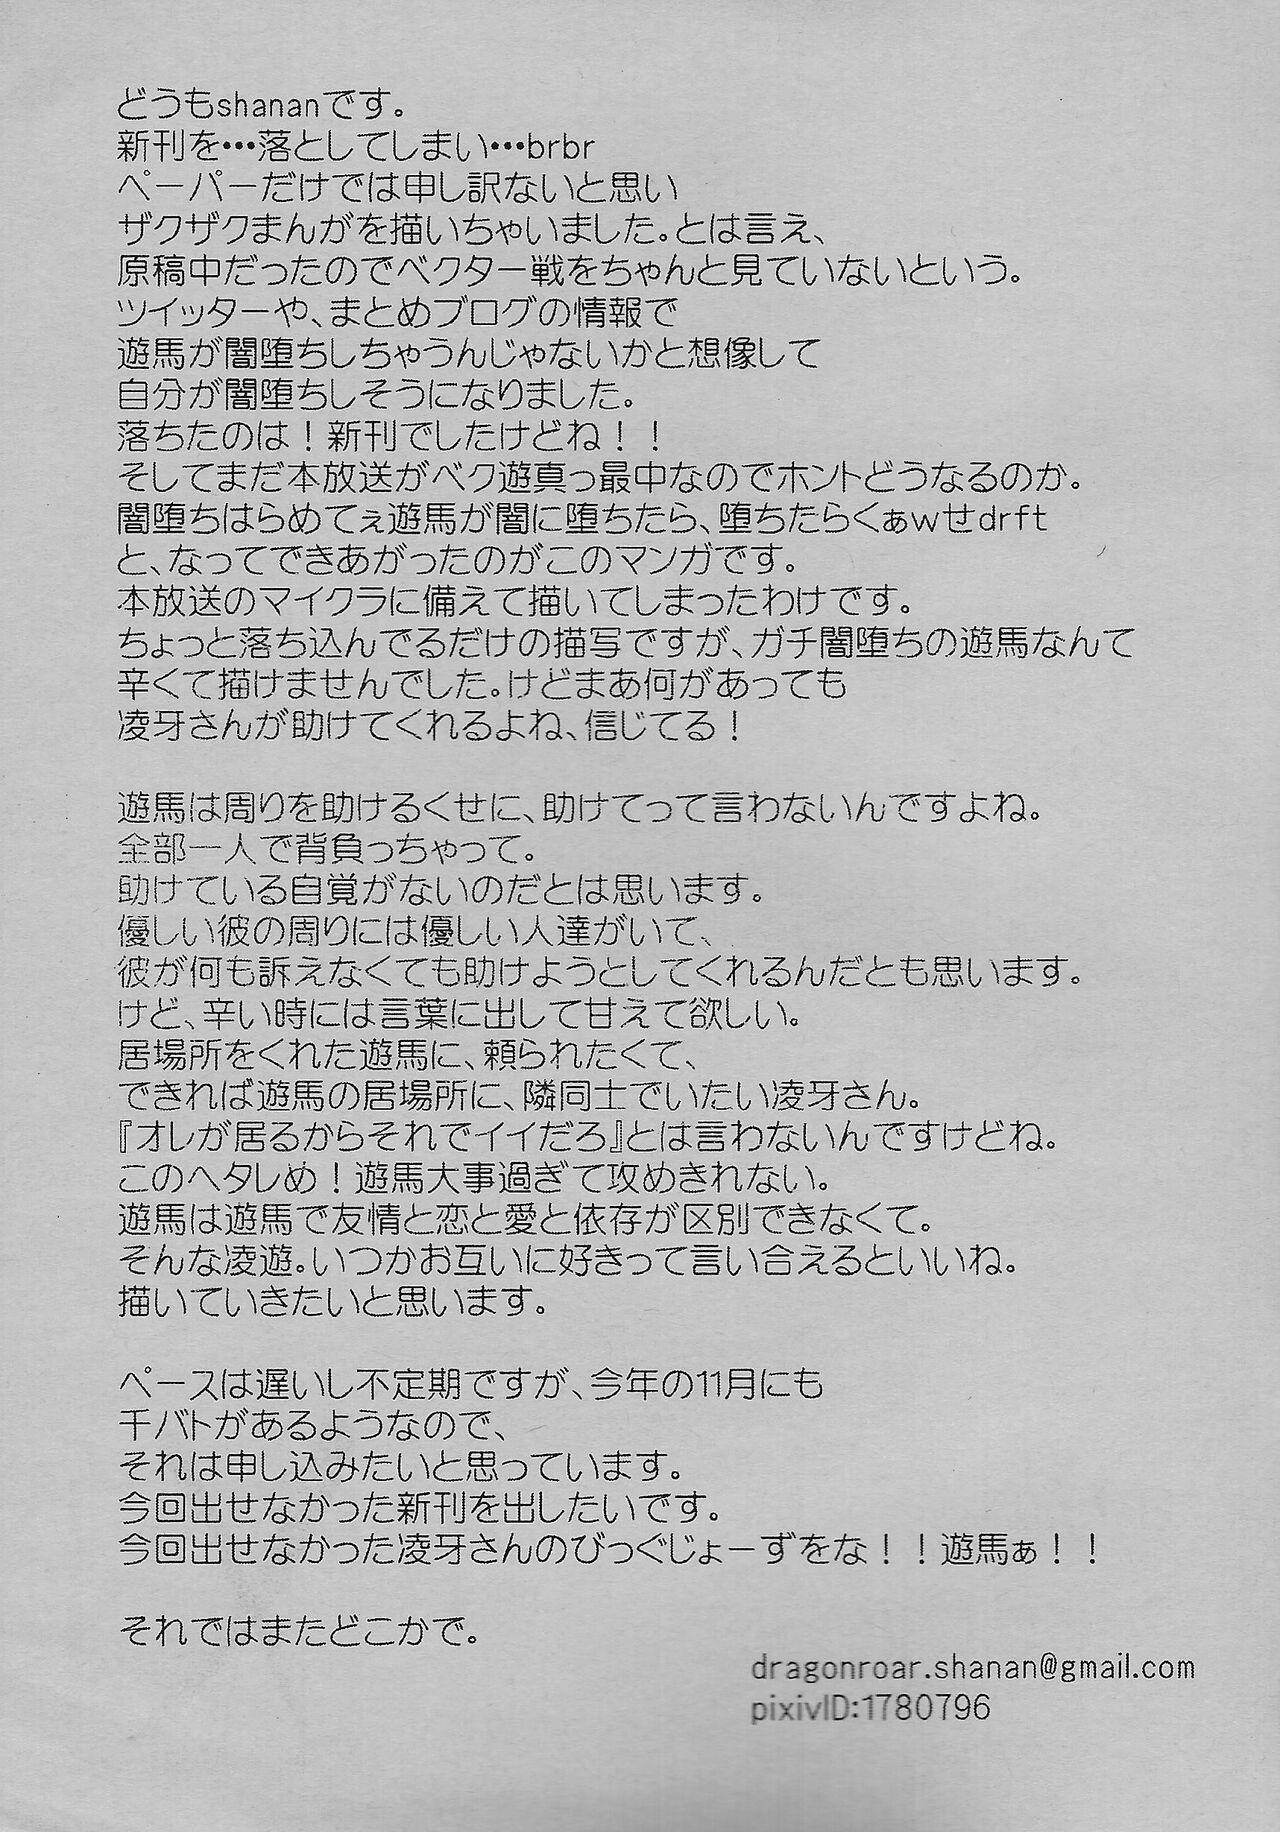 どうもshananです。
新刊を・・・落としてしまい・・・brbr
ペーパーだけでは申し訳ないと思い
ザクザクまんがを描いちゃいました。とは言え、
原稿中だったのでベクター戦をちゃんと見ていないという。
ツイッターや、まとめブログの情報で
遊馬が闇堕ちしちゃうんじゃないかと想像して
自分が闇堕ちしそうになりました。
落ちたのは！新刊でしたけどね！！
そしてまだ本放送がベク遊真っ最中なのでホントどうなるのか。
闇堕ちはらめてぇ遊馬が闇に堕ちたら、堕ちたらくぁｗせdrft
と、なってできあがったのがこのマンガです。
本放送のマイクラに備えて描いてしまったわけです。
ちょっと落ち込んでるだけの描写ですが、ガチ闇堕ちの遊馬なんて
辛くて描けませんでした。けどまあ何があっても
凌牙さんが助けてくれるよね、信じてる！
遊馬は周りを助けるくせに、助けてって言わないんですよね。
全部一人で背負っちゃって。
助けている自覚がないのだとは思います。
優しい彼の周りには優しい人達がいて、
彼が何も訴えなくても助けようとしてくれるんだとも思います。
けど、辛い時には言葉に出して甘えて欲しい。
居場所をくれた遊馬に、頼られたくて、
できれば遊馬の居場所に、隣同士でいたい凌牙さん。
『オレが居るからそれでイイだろ』とは言わないんですけどね。
このヘタレめ！遊馬大事過ぎて攻めきれない。
遊馬は遊馬で友情と恋と愛と依存が区別できなくて。
そんな凌遊。いつかお互いに好きって言い合えるといいね。
描いていきたいと思います。
ペースは遅いし不定期ですが、今年の11月にも
千バトがあるようなので、
それは申し込みたいと思っています。
今回出せなかった新刊を出したいです。
今回出せなかった凌牙さんのびっぐじょーずをな！！遊馬ぁ！！
それではまたどこかで。
dragonroar.shanan@gmail.com
pixivID:1780796